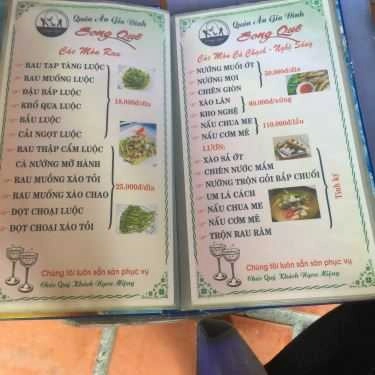 Quán Ăn Gia Đình
Song Quê
Các Món Rau
RAU TẠP TÀNG LUỘC
RAU MUỐNG LUỘC
ĐẬU BẮP LUỘC
KHỔ QUA LUỘC
BẦU LUỘC
CẢI NGỌT LUỘC
RAU THẬP CẨM LUỘC
CÀ NƯỚNG MỠ HÀNH
RAU MUỐNG XÀO TỎI
RAU MUỐNG XÀO CHAO
ĐỌT CHOẠI LUỘC
ĐỌT CHOẠI XÀO TỎI
25.000đ/dĩa
Chúng tôi luôn sẵn sàn phục vụ
Chúc Quý Khách Ngon Miệng
Quán Ăn Gia Đình
Song Quê
Các Món Cá Chạch - Nghệ Sống
NƯỚNG MUỐI ỚT
NƯỚNG MỌI
CHIÊN GIÒN
XÀO LĂN
KHO NGHỆ
NẤU CHUA ME
NẤU CƠM MẺ
110.000đ/lẩu
LƯƠN:
XÀO SẢ ỚT
CHIÊN NƯỚC MẮM
NƯỚNG TRỘN GỎI BẮP CHUỐI
UM LÁ CÁCH
NẤU CHUA ME
NẤU CƠM MẺ
TRỘN RAU RĂM
Tính ký
Chúng tôi luôn sẵn sàn phục vụ
Chúc Quý Khách Ngon Miệng